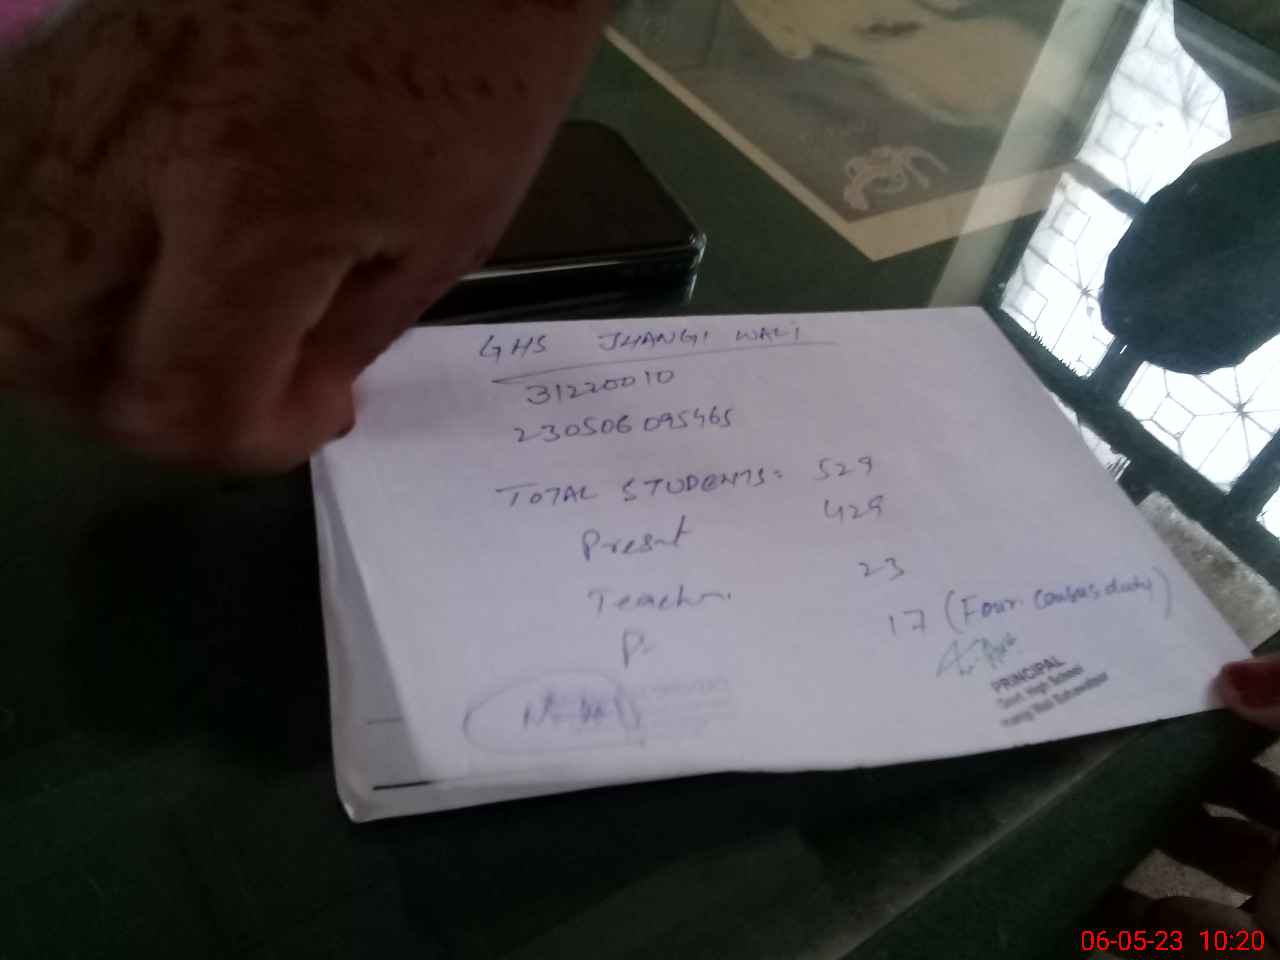 GHS JHANGI WALI
31220010
230506095465
TOTAL STUDENTS: 529
Present 429
Teacher. 23
P- 17 (Four census duty)
PRINCIPAL
Govt. High School
06-05-23 10:20